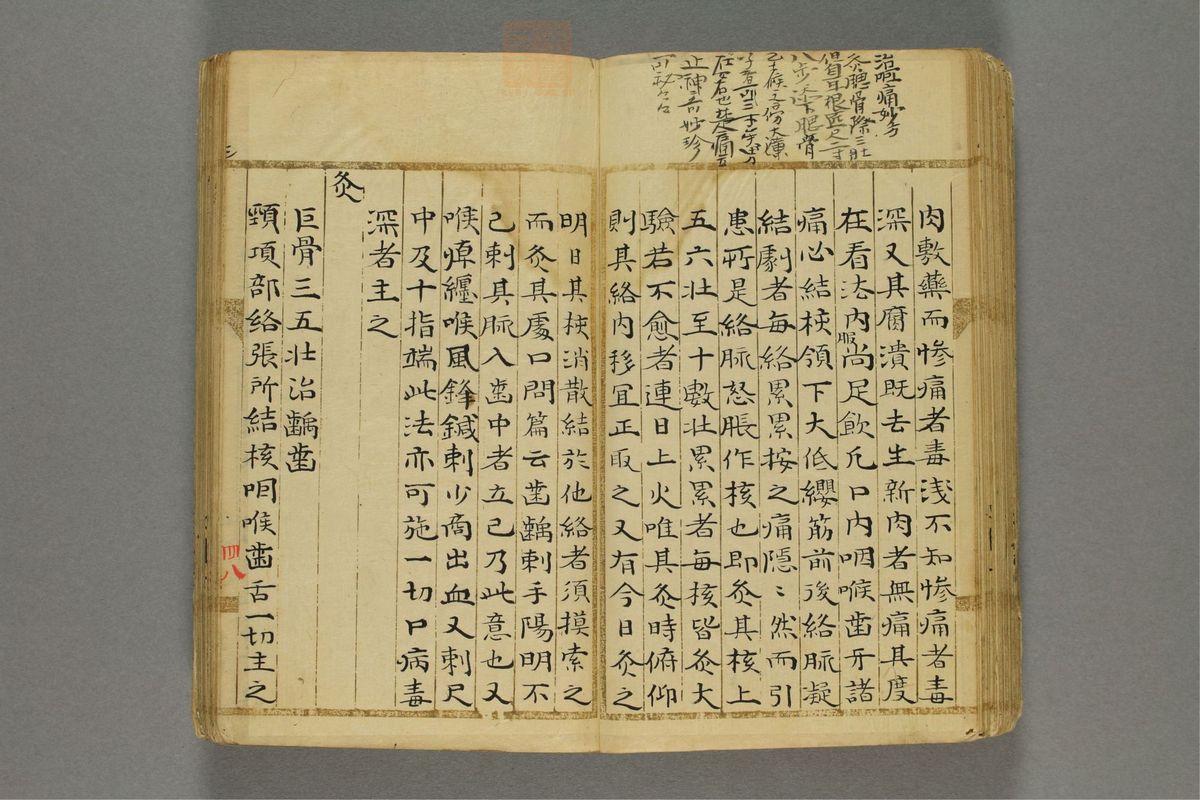 治咽痛妙方
灸腮骨際三壮
肉敷藥而慘痛者毒淺不知慘痛者毒
深又其腐潰既去生新肉者無痛其度
在看法内服尚足飲凡口内咽喉齒牙諸
痛必結核頷下大低纓筋前後絡脈凝
結劇者每絡累累按之痛隱〻然而引
患所是絡脈怒脹作核也即灸其核上
五六壮至十數壮累累者每核皆灸大
驗若不愈者連日上火唯其灸時俯仰
則其絡内移宜正取之又有今日灸之
明日其核消散結於他絡者須摸索之
而灸其處口問篇云齒齲刺手陽明不
已刺其脈入齒中者立已乃此意也又
喉痺纏喉風鋒鍼刺少商出血又刺尺
中及十指端此法亦可施一切口病毒
深者主之
灸
巨骨三五壮治齲齒
頸項部絡張所結核咽喉齒舌一切主之
四八